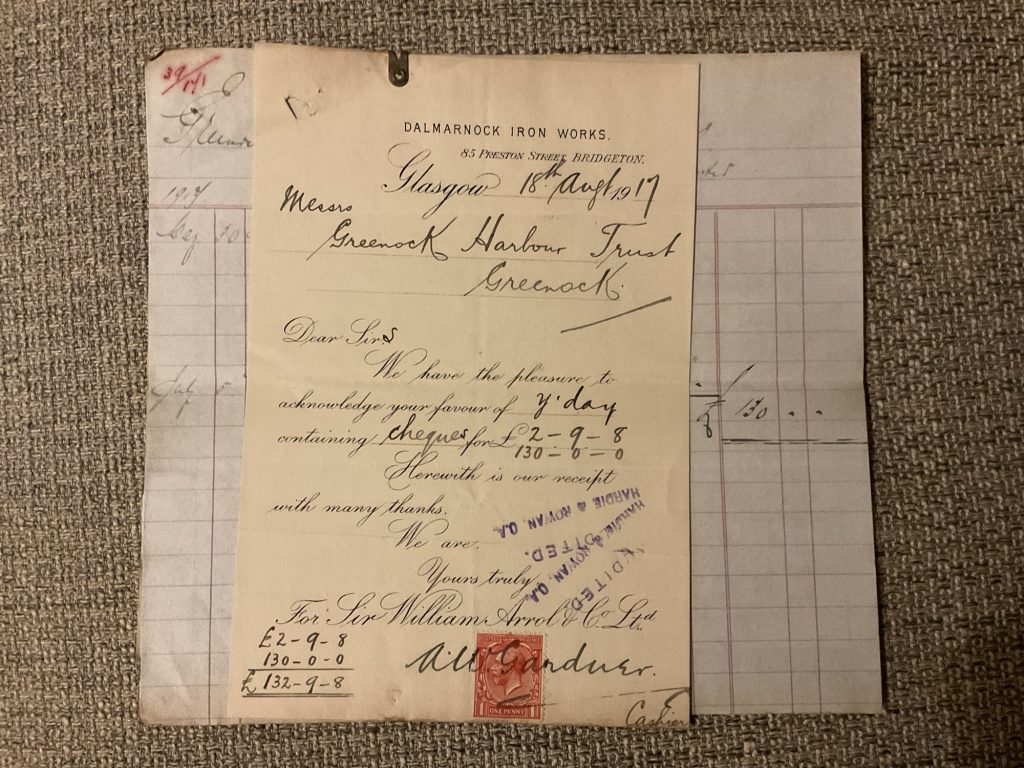 39/141
DALMARNOCK IRON WORKS.
85 PRESTON STREET, BRIDGETON,
Glasgow 18th Augt 1917
Messrs
Greenock Harbour Trust
Greenock.
Dear Sirs
We have the pleasure to
acknowledge your favour of y'day
containing cheques for £2-9-8
130-0-0
Herewith is our receipt
with many thanks.
We are,
Yours truly
For Sir William Arrol & Co. Ltd.
£2-9-8
130-0-0
£132-9-8
A.W. Gardner.
Cashier
ONE PENNY
1 1
HARDIE & ROWAN, C.A.
AUDITED.
HARDIE & ROWAN, C.A.
AUDITED
£ 130 " "